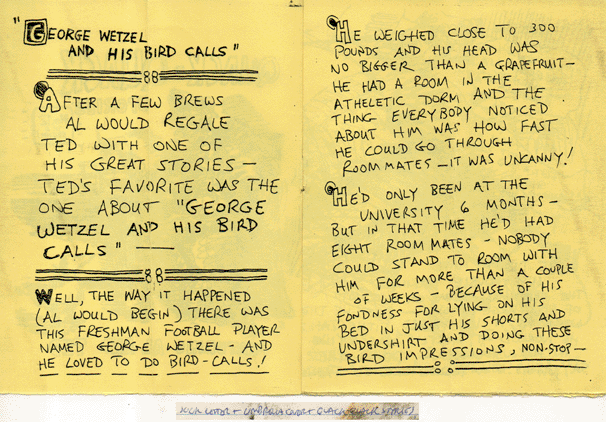 "GEORGE WETZEL
AND HIS BIRD CALLS"
AFTER A FEW BREWS
AL WOULD REGALE
TED WITH ONE OF
HIS GREAT STORIES —
TED'S FAVORITE WAS THE
ONE ABOUT "GEORGE
WETZEL AND HIS BIRD
CALLS" —
WELL, THE WAY IT HAPPENED
(AL WOULD BEGIN) THERE WAS
THIS FRESHMAN FOOTBALL PLAYER
NAMED GEORGE WETZEL - AND
HE LOVED TO DO BIRD-CALLS!
HE WEIGHED CLOSE TO 300
POUNDS AND HIS HEAD WAS
NO BIGGER THAN A GRAPEFRUIT —
HE HAD A ROOM IN THE
ATHELETIC DORM AND THE
THING EVERYBODY NOTICED
ABOUT HIM WAS HOW FAST
HE COULD GO THROUGH
ROOMMATES — IT WAS UNCANNY!
HE'D ONLY BEEN AT THE
UNIVERSITY 6 MONTHS —
BUT IN THAT TIME HE'D HAD
EIGHT ROOMMATES - NOBODY
COULD STAND TO ROOM WITH
HIM FOR MORE THAN A COUPLE
OF WEEKS — BECAUSE OF HIS
FONDNESS FOR LYING ON HIS
BED IN JUST HIS SHORTS AND
UNDERSHIRT AND DOING THESE
BIRD IMPRESSIONS, NON-STOP —